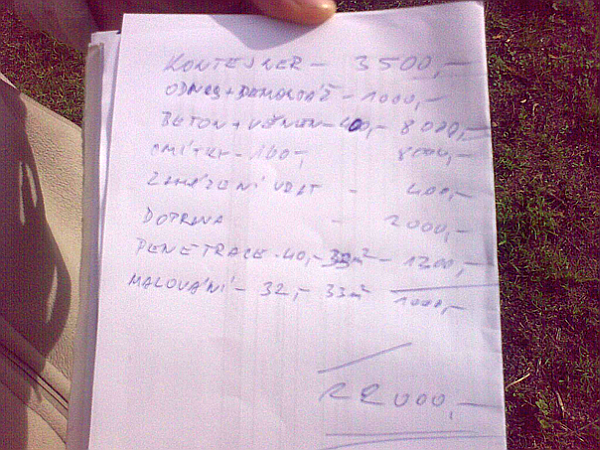 KONTEJNER - 3500,-
ODNOS + DEMONTÁŽ - 1000,-
BETON + - 400,- 8000,-
OMÍTKY - 160,- 8000,-
- 400,-
DOPRAVA - 2000,-
PENETRACE - 40,- 33m² - 1300,-
MALOVÁNÍ - 32,- 33m² 1000,-
22000,-